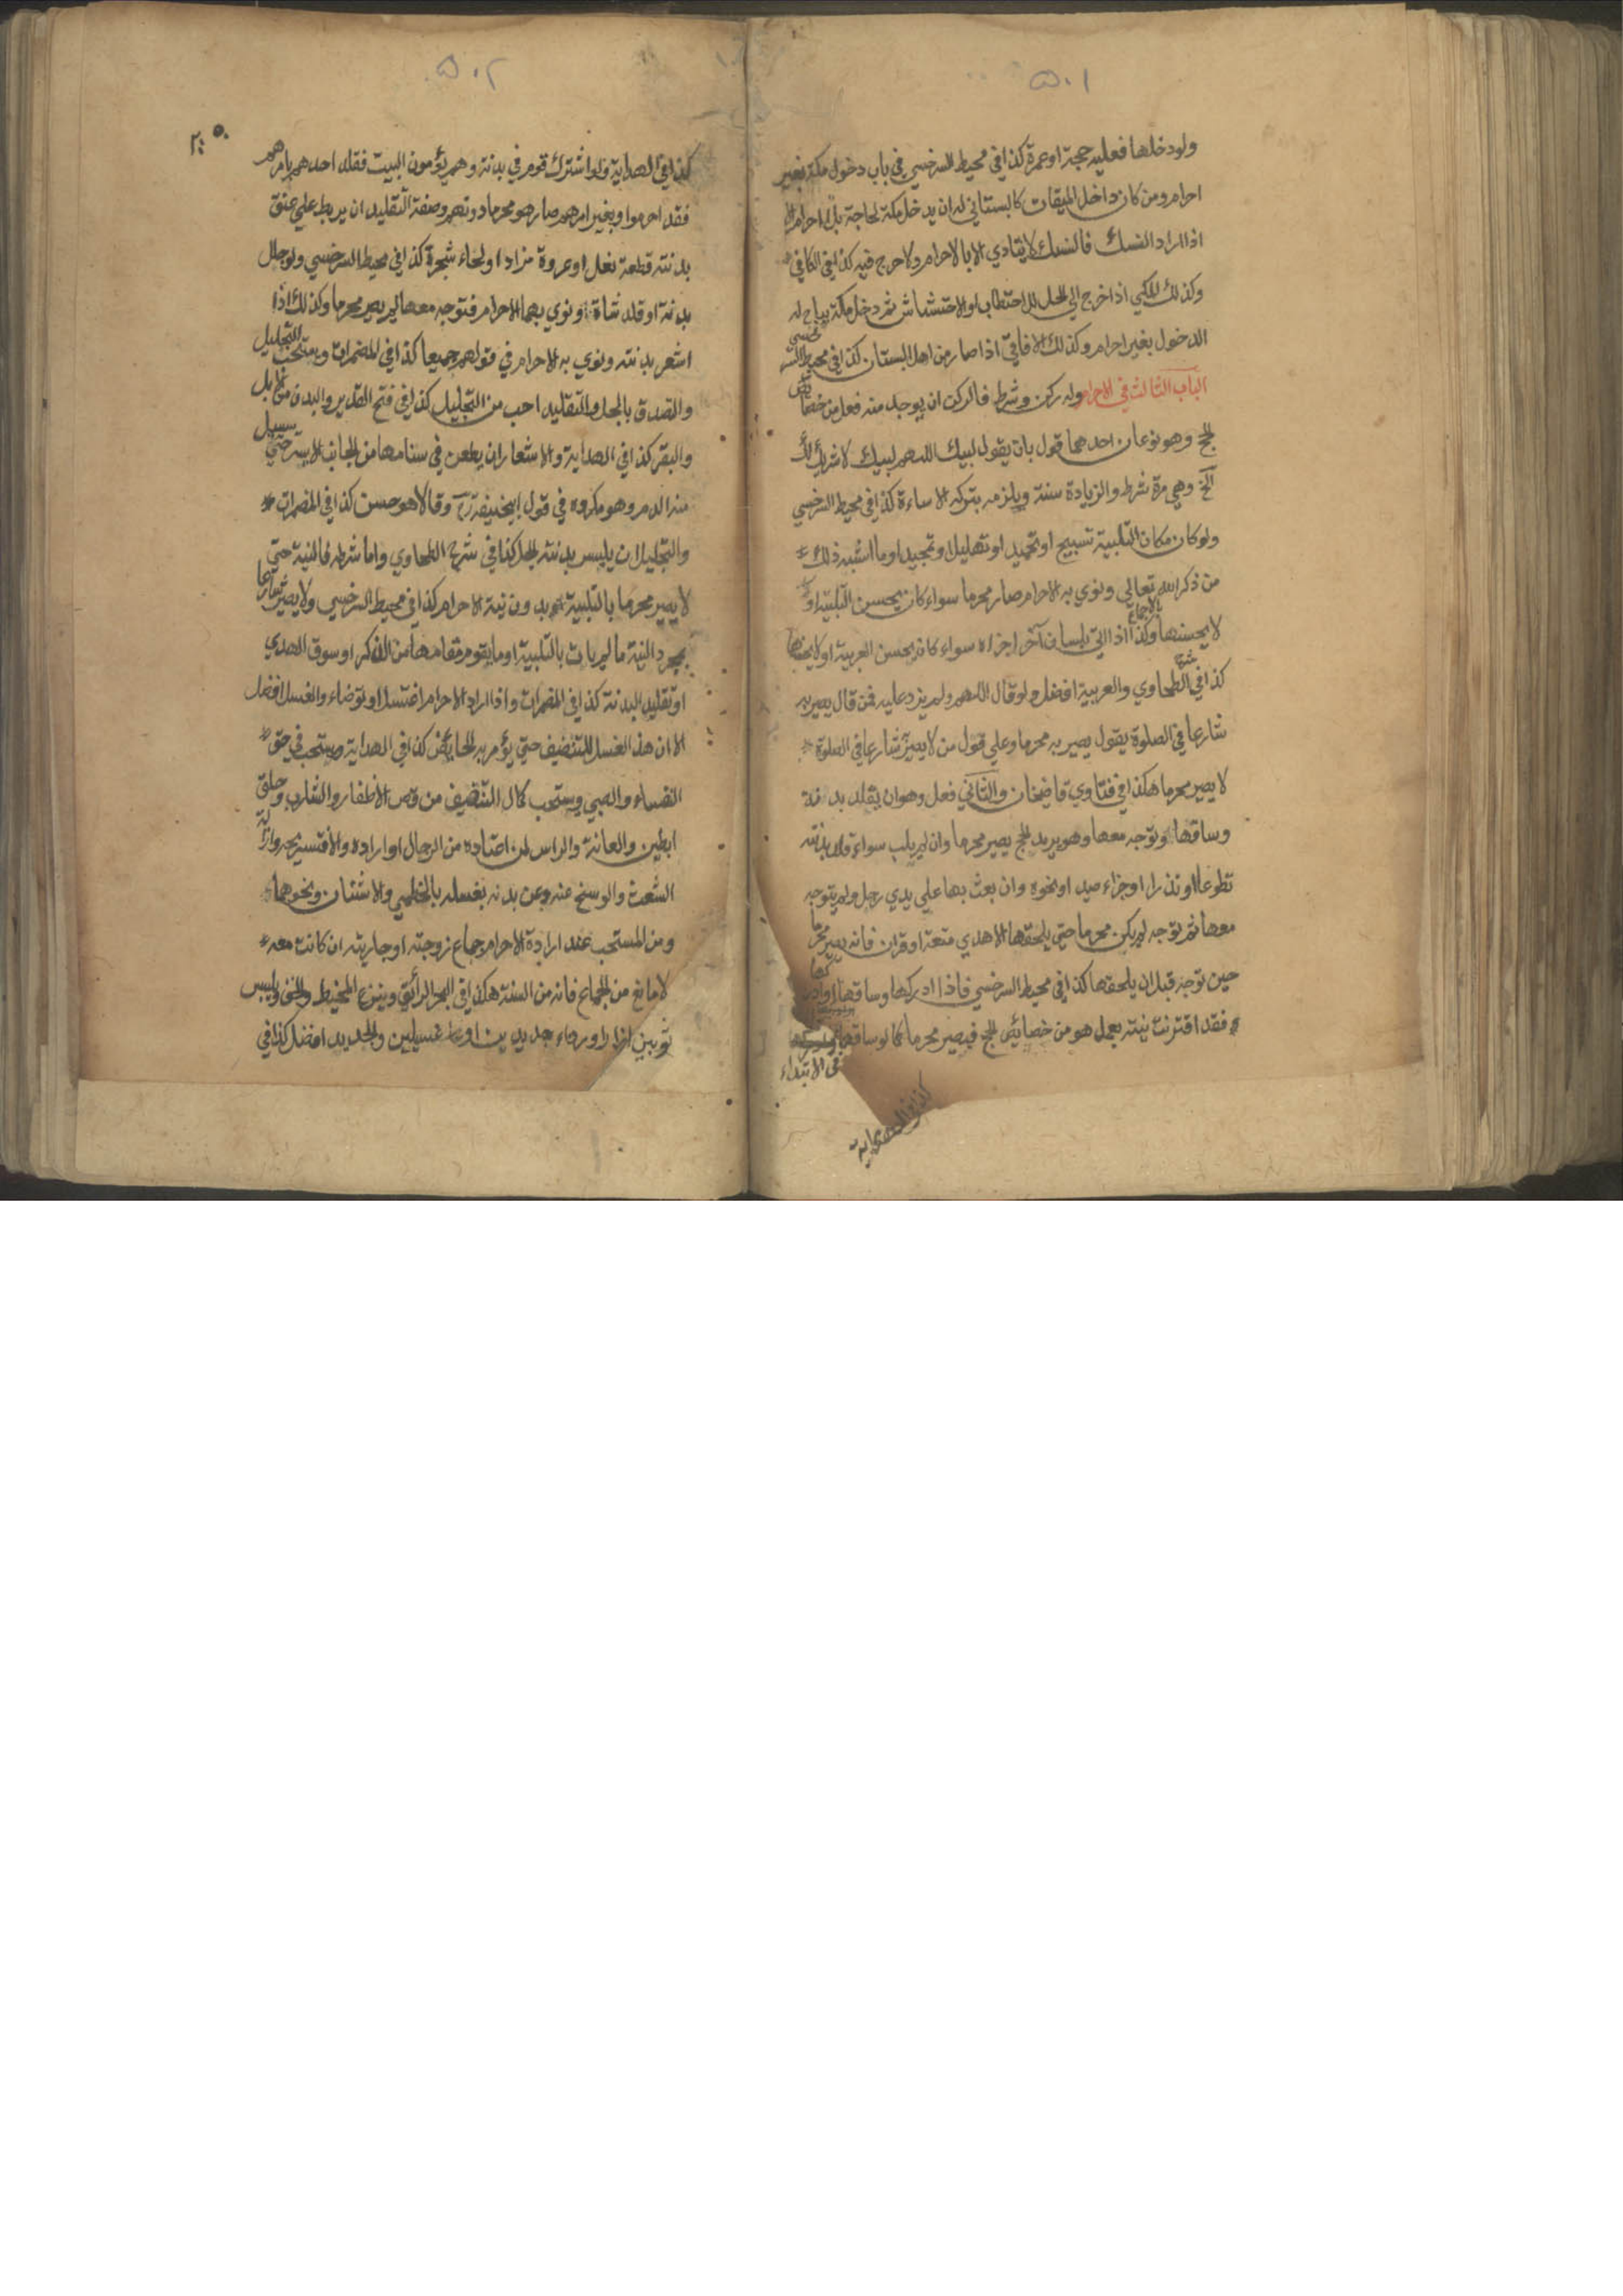 ٥٠١
ولو دخلها فعليه حجة او عمرة كذا في محيط السرخسي في باب دخول مكة بغير
احرام ومن كان داخل الميقات كالبستاني له ان يدخل مكة لحاجة بلا احرام الا
اذا اراد النسك فالنسك لا يتادي الا بالاحرام ولا حرج فيه كذا في الكافي
وكذلك المكي اذا خرج الي الحل للاحتطاب او الاحتشاش ثم دخل مكة يباح له
الدخول بغير احرام وكذلك الافاقي اذا صار من اهل البستان كذا في محيط السرخسي
الباب الثالث في الاحرام وله ركن وشرط فالركن ان يوجد منه فعل من خصائص
الحج وهو نوعان احدهما قول بان يقول لبيك اللهم لبيك لا شريك لك
الخ وهي مرة شرط والزيادة سنة ويلزمه بتركه الاساءة كذا في محيط السرخسي
ولو كان مكان التلبية تسبيح او تحميد او تهليل او تمجيد او ما اشبه ذلك
من ذكر الله تعالي ونوي به الاحرام صار محرما سواء كان يحسن التلبية او
لا يحسنها وكذا بالاجماع اذا اتي بلسان آخر اجزاه سواء كان يحسن العربية او لا يحسنها
كذا في شرح الطحاوي والعربية افضل ولو قال اللهم ولم يزد عليه فمن قال يصير به
شارعا في الصلوة يقول يصير به محرما وعلي قول من لا يصير شارعا في الصلوة
لا يصير محرما هكذا في فتاوي قاضيخان والثاني فعل وهو ان يقلد بدنة
وساقها وتوجه معها وهو يريد الحج يصير محرما وان لم يلب سواء قلد بدنته
تطوعا او نذرا او جزاء صيد او نحوه وان بعث بها علي يدي رجل ولم يتوجه
معها ثم توجه لم يكن محرما حتي يلحقها الا هدي متعة او قران فانه يصير محرما
حين توجه قبل ان يلحقها كذا في محيط السرخسي فاذا ادركها وساقها او ادركها
فقد اقترنت نيته بعمل هو من خصائص الحج فيصير محرما كما لو ساقها
في الابتداء
كذا في الهداية
٥٠٢
كذا في الهداية ولو اشترك قوم في بدنة وهم يؤمون البيت فقلد احدهم بامرهم
فقد احرموا وبغير امرهم صار هو محرما دونهم وصفة التقليد ان يربط علي عنق
بدنته قطعة نعل او عروة مزادا او لحاء شجرة كذا في محيط السرخسي ولو جلل
بدنة او قلد شاة ونوي بهما الاحرام فتوجه معها لم يصر محرما وكذلك اذا
اشعر بدنته ونوي به الاحرام في قولهم جميعا كذا في المضمرات ويستحب التجليل
والتصدق بالجل والتقليد احب من التجليل كذا في فتح القدير والبدن من الابل
والبقر كذا في الهداية والاشعار ان يطعن في سنامها من الجانب الايسر حتي يسيل
منه الدم وهو مكروه في قول ابيحنيفة رح وقالا هو حسن كذا في المضمرات
والتجليل ان يلبس بدنته الجل كذا في شرح الطحاوي واما شرطه فالنية حتي
لا يصير محرما بالتلبية بدون نية الاحرام كذا في محيط السرخسي ولا يصير شارعا
بمجرد النية ما لم يات بالتلبية او ما يقوم مقامها من الذكر او سوق الهدي
او تقليد البدنة كذا في المضمرات واذا اراد الاحرام اغتسل او توضاء والغسل افضل
الا ان هذا الغسل للتنضيف حتي يؤمر به الحائض كذا في الهداية ويستحب في حق
النفساء والصبي ويستحب كمال التنضيف من قص الاظفار والشارب وحلق
ابطين والعانة والراس لمن اعتاده من الرجال او اراده والا فتسريحه وازالة
الشعث والوسخ عنه وعن بدنه بغسله بالخطمي والاشنان ونحوهما
ومن المستحب عند ارادة الاحرام جماع زوجته او جاريته ان كانت معه
لا مانع من الجماع فانه من السنة هكذا في البحر الرائق وينزع المخيط والخف ويلبس
ثوبين ازارا ورداء جديدين او غسيلين والجديد افضل كذا في